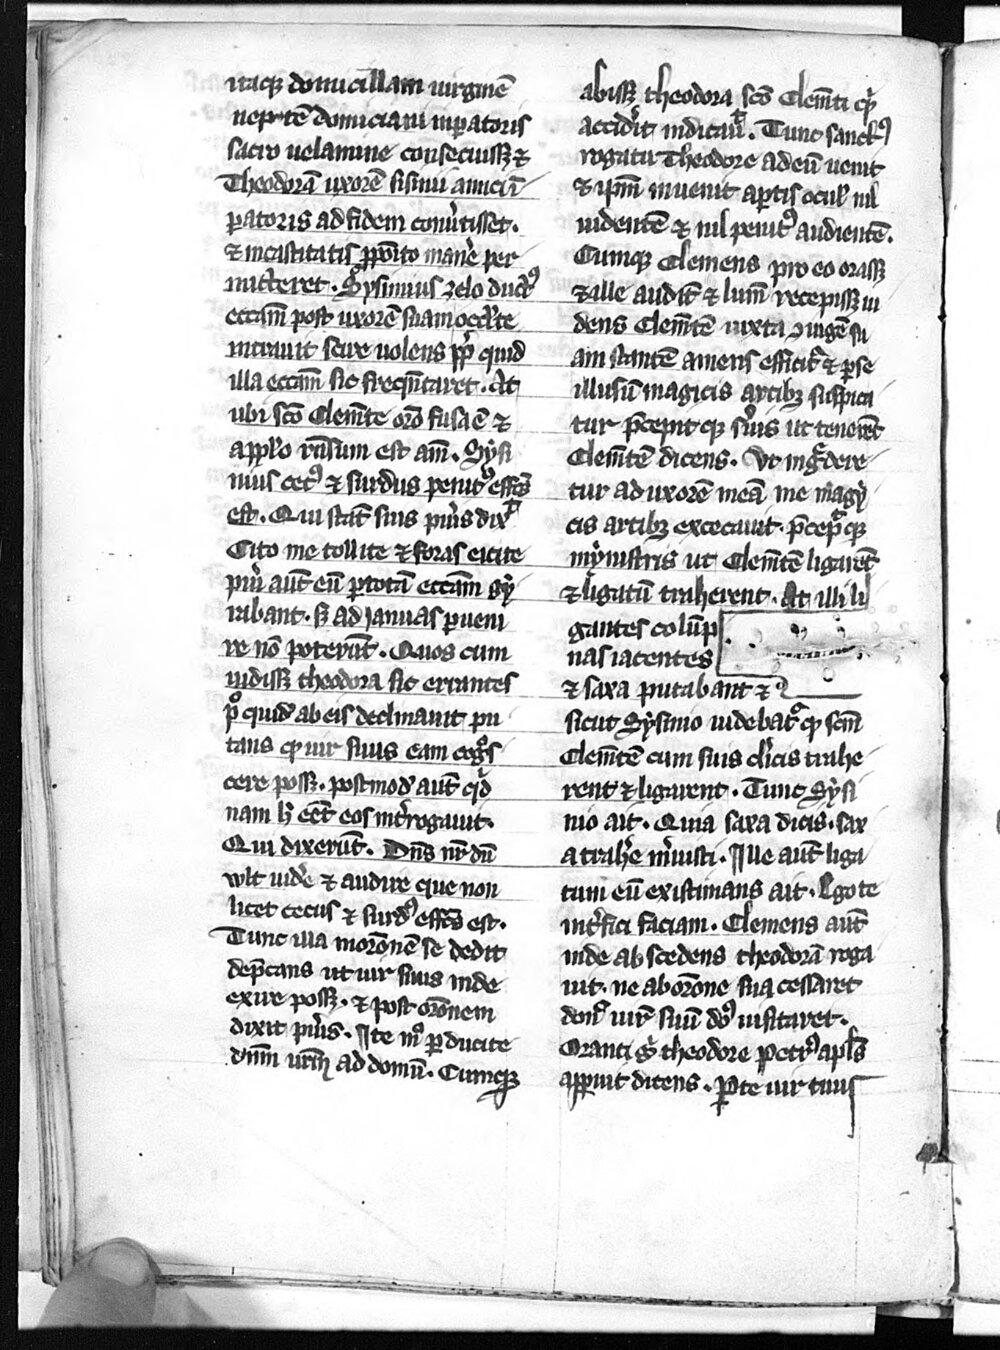 itaqꝫ domicillam uirginē
neptē domiciani inꝑatoris
sacro uelamine consecuissꝫ ⁊
Theodorā uxorē sisinii amici ī
ꝑatoris ad fidem conůtisset.
⁊ in castitatis ꝓpoīto manẻ per
mitteret. Sysinius zelo ductꝰ
eccām post uxorē suam occl̓te
intrauit scire uolens ꝓp̓ quid
illa eccām sic freqn̄taret. At
ubi scō Clem̄te orō fusa ē ⁊
a pplo rn̄sum est am̄. Sysi
nius cecꝰ ⁊ surdus penitꝰ effc̄s
est. Qui stat̄ suis pu̓is dix̓
Cito me tollite ⁊ foras eicite
pu̓i aut̄ eū ꝑ totā eccām gy
rabant. sꝫ ad ianuas ꝑueni
re nō poterūt. Quos cum
uidissꝫ theodora sic errantes
pͦ quidē ab eis declinauit pu
tans ꝙ uir suus eam cogͦs
cere possꝫ. postmodū aut̄ qͥd
nam h̓ eēt eos int̓rogauit.
Qui dixerūt. Dn̄s nr̄ dū
wlt uid̓e ⁊ audire que non
licet cecus ⁊ surdꝰ effc̄s est.
Tunc illa in orōnē se dedit
dep̄cans ut uir suus inde
exire possꝫ. ⁊ post orōnem
dixit pu̓is. Ite mͦ ꝑducite
dn̄m ur̄m ad domū. Cumqꝫ
abissꝫ theodora scō Clem̄ti qͥ
accid̓it indicauit. Tunc sanctꝰ
rogatu Theodore ad eū uenit
⁊ ipm̄ inuenit aꝑtis ocul̓ nil
uidentē ⁊ nil penitꝰ audientē.
Cumqꝫ Clemens pro eo orassꝫ
⁊ ille auditū ⁊ lum̄ recepissꝫ ui
dens Clem̄tē iuxta ꝯiugē su
am stantē amens efficit̓ ⁊ ꝑ se
illusū magicis artibꝫ suspica
tur p̄cepit qꝫ s̓uis ut tenerēt
Clem̄tē dicens. Ut ingͣdere
tur ad uxorē meā me magy
cis artibꝫ excecauit. p̄cepͣqꝫ
mynistris ut Clem̄tē ligarēt
⁊ ligatū traherent. At illi li
gantes colūp
nas iacentes
⁊ saxa putabant ⁊
sicut Sysinio uidebatͬ ꝙ scm̄
Clem̄tē cum suis cl̓icis trahe
rent ⁊ ligarent. Tunc Sysi
nio ait. Quia saxa dicis. sax
a trah̓e m̓uisti. Ille aut̄ liga
tum eū existimans ait. Ego te
int̓fici faciam. Clemens aut̄
inde abscedens theodorā roga
uit. ne ab orōne sua cessaret
donͨ uir̄ suū dōs uisitaret.
Oranti gͦ theodore Petrꝰ apl̄s
apparuit dicens. Per te uir tuus